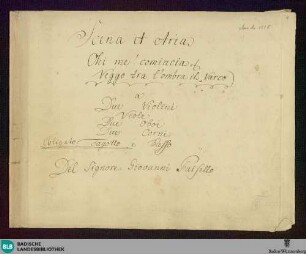 Scena et Aria
Chi mi comincia
Veggo tra l'ombre il varco
a
Due Violini
Viole
Due Oboi
Due Corni
Obligato Fagotto e Basso
Del Signore Giovanni
BLB BADISCHE
LANDESBIBLIOTHEK